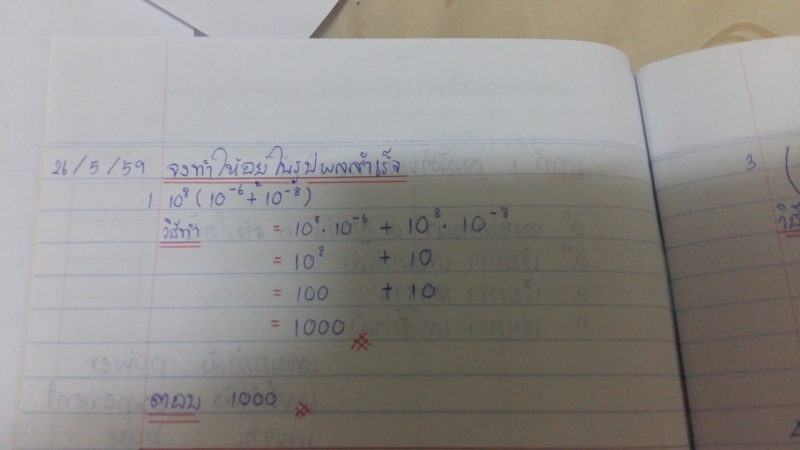 26/5/59 จงทำให้อยู่ในรูปผลสำเร็จ
1. 10⁸ (10⁻⁶ + 10⁻⁸)
วิธีทำ = 10⁸ · 10⁻⁶ + 10⁸ · 10⁻⁸
= 10² + 10
= 100 + 10
= 1000
ตอบ 1000
3